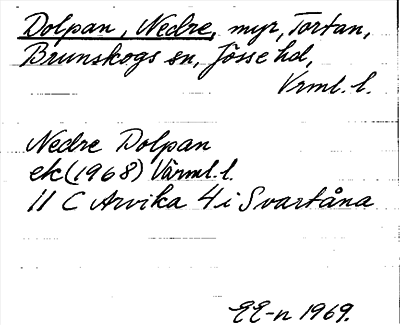 Dolpan, Nedre, myr, Tortan,
Brunskogs sn, Jösse hd,
Vrml. l.
Nedre Dolpan
ek (1968) Värml. l.
11 C Arvika 4 i Svartåna
EE-n 1969.